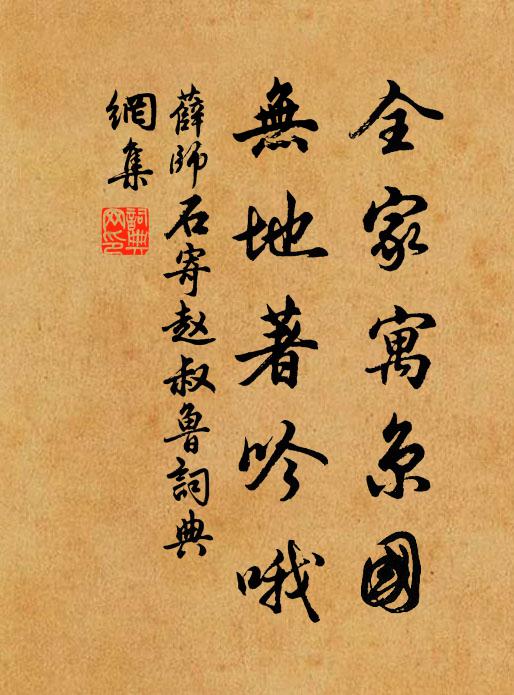 全家寓京國
無地著吟哦
薛師石寄赵叔魯詞典
網集
詞典網印